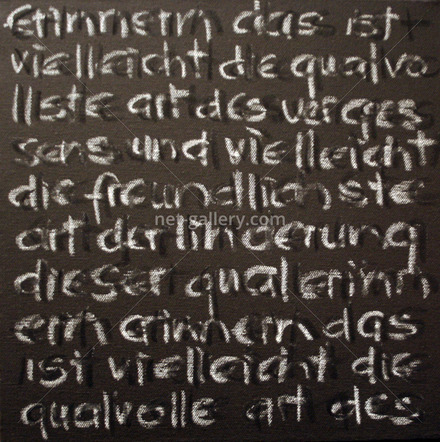 Erinnern das ist
vielleicht die qualvo
llste art des verges
sens und vielleicht
die freundlichste
art der linderung
net-gallery.com
dieser qual erinn
ern erinnern das
ist vielleicht die
qualvolle art des